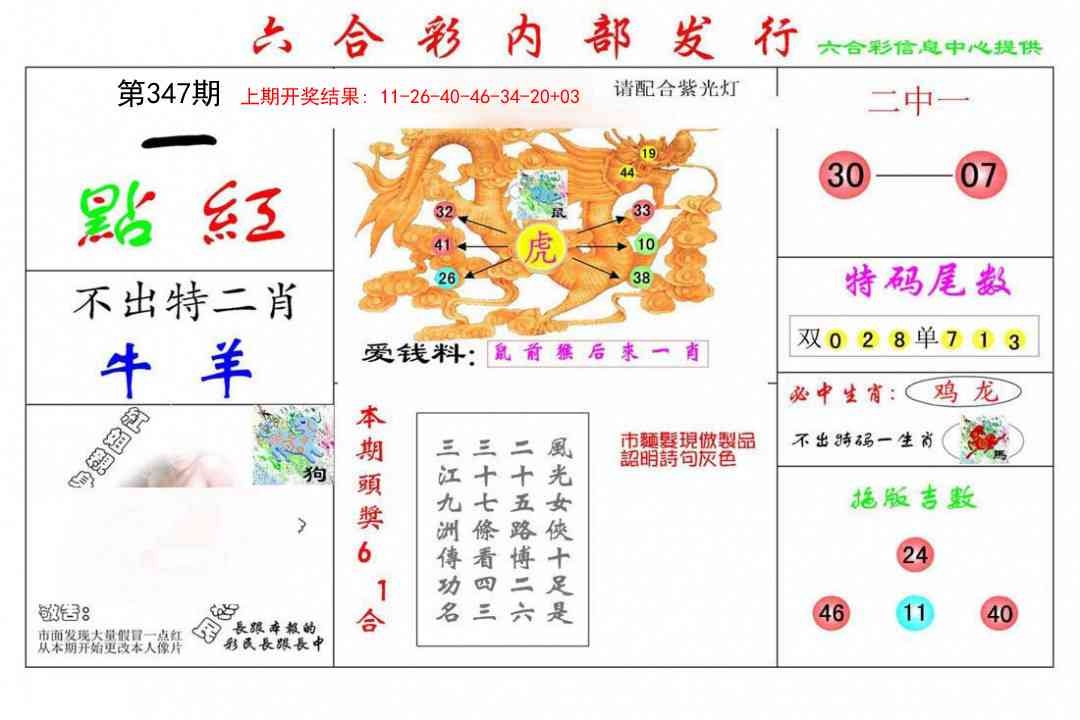 六合彩内部发行
六合彩信息中心提供
第347期
上期开奖结果：11-26-40-46-34-20+03
请配合紫光灯
一
點紅
不出特二肖
牛 羊
狗
敬告：
市面发现大量假冒一点红
从本期开始更改本人像片
長跟本報的
彩民長跟長中
19
44
鼠
32
33
41
虎
10
26
38
爱钱料：
鼠前猴后来一肖
本期頭獎61合
風光女俠十足是
二十五路博二六
三十七條看四三
三江九洲傳功名
市麵髮現倣製品
認明詩句灰色
二中一
30
07
特码尾数
双 0 2 8 单 7 1 3
必中生肖：
鸡龙
不出特码一生肖
馬
拖版吉数
24
46
11
40